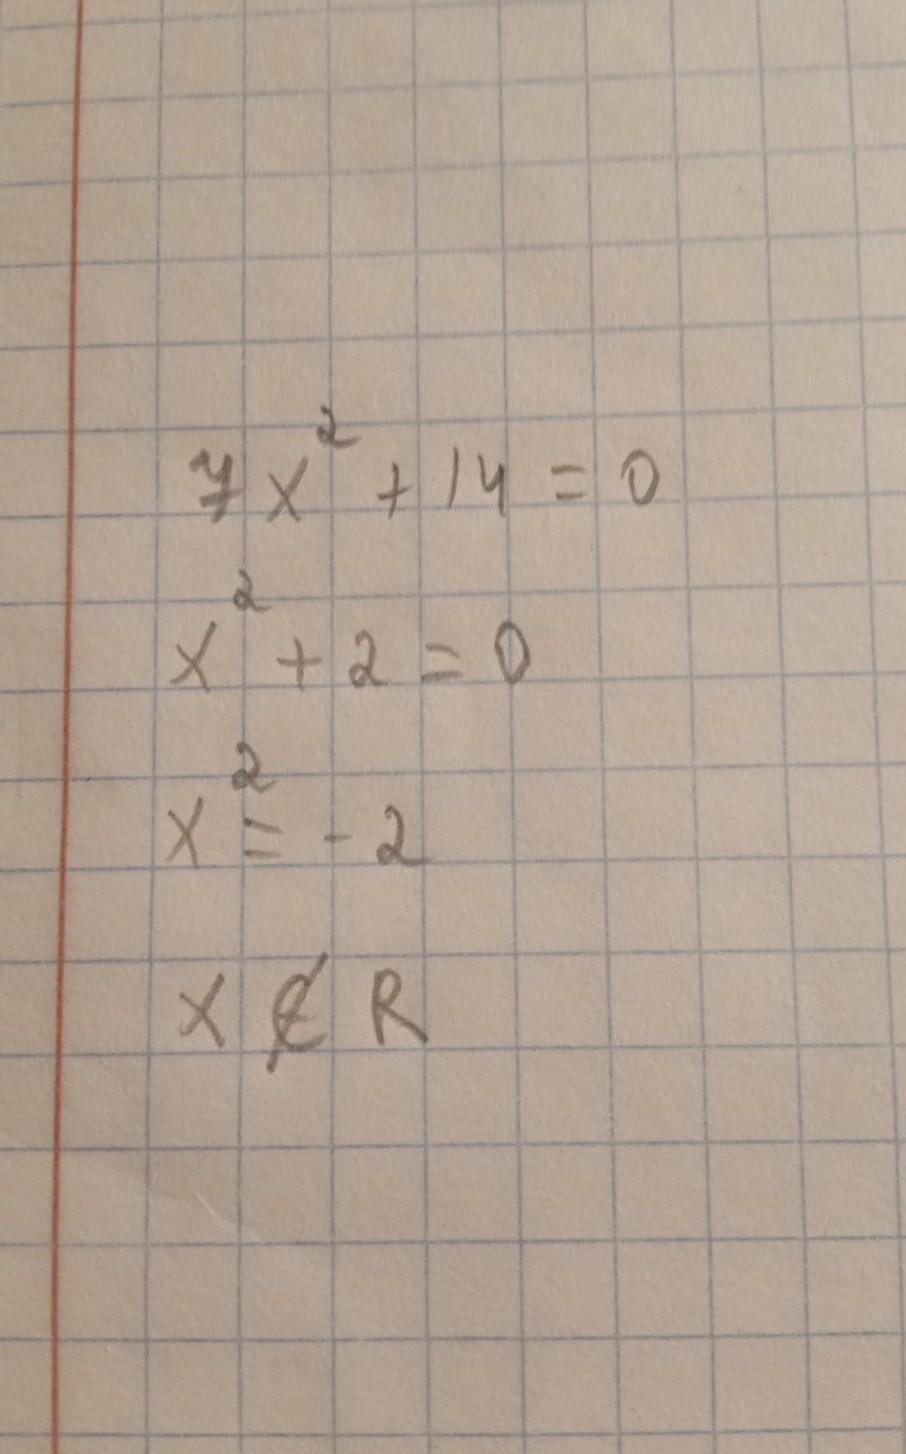 7x² + 14 = 0
x² + 2 = 0
x² = - 2
x ∉ R